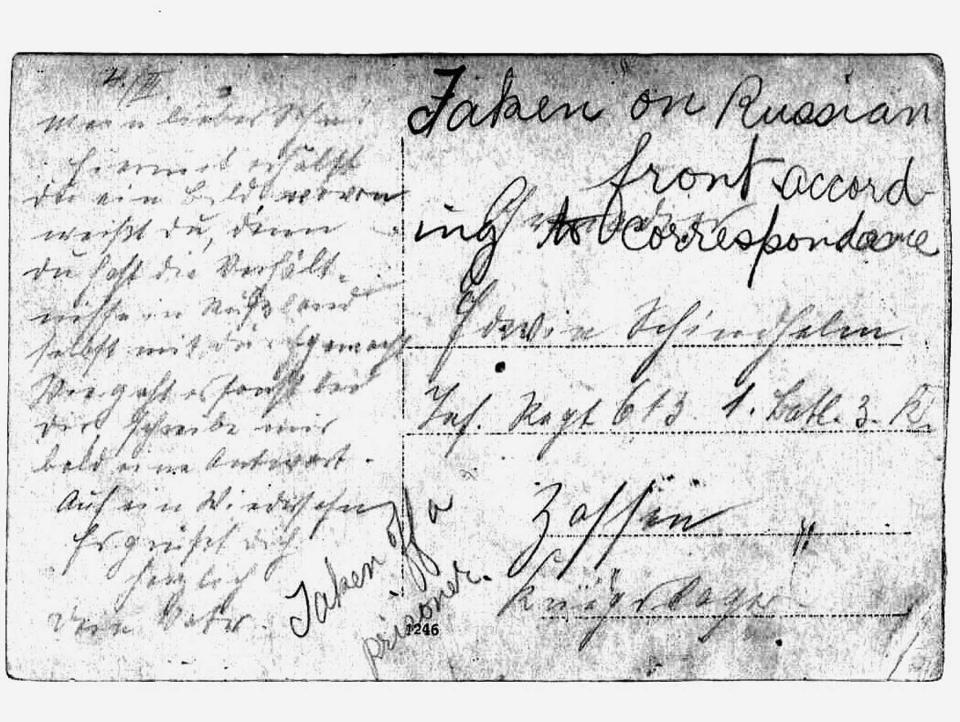 Mein lieber Sohn!
Hiermit erhälst
du ein Bild wovon
weißt du, denn
du hast die Verhält-
nisse in Rußland
selbst mit durchgemacht
Wie geht es sonst bei
dir, schreibe mir
bald eine Antwort.
Auf ein Wiedersehn
Es grüßt dich
herzlich
dein Vater.
Taken on Russian
front accord-
ing to correspondance
Edwin Schindhelm
Inf. Regt 613 1. Batl. 3. K.
Zossen
Taken off a
prisoner.
1246